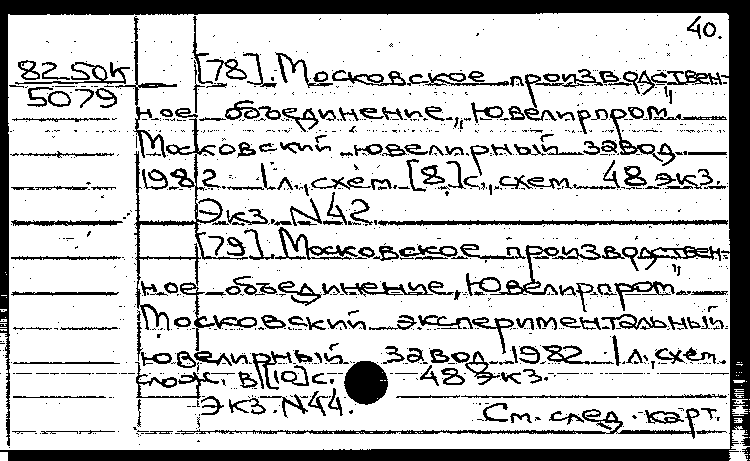 40.
82-50К
5079
[78]. Московское производствен-
ное объединение „Ювелирпром".
Московский ювелирный завод.
1982 1 л., схем. [8] с., схем. 48 экз.
Экз. N42
[79]. Московское производствен-
ное объединение „Ювелирпром"
Московский экспериментальный
ювелирный завод 1982 1 л., схем.
слож. в [10] с. 48 экз.
Экз. N44.
См. след. карт.